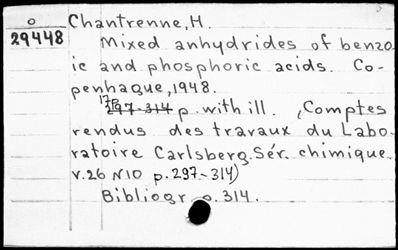 o Chantrenne, H.
29448
Mixed anhydrides of benzo
ic and phosphoric acids. Co-
penhague, 1948.
17p
297-314 p. with ill. (Comptes
rendus des travaux du Labo-
ratoire Carlsberg. Sér. chimique.
v.26 N10 p.297-314)
Bibliogr. p. 314.